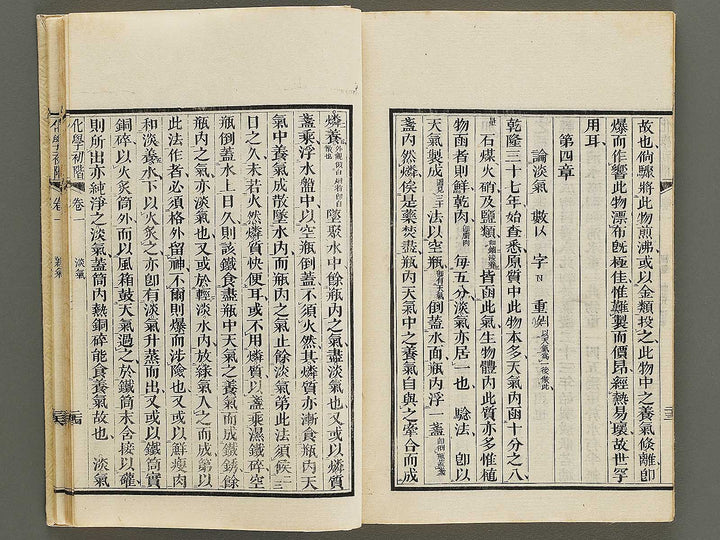 故也倘驟將此物煎沸或以金類投之此物中之養氣倏離卽
爆而作響此物漂布旣極佳惟難製而價昂經熱易壞故世罕
用耳
第四章
論淡氣 數以 字 重
乾隆三十七年始查悉原質中此物本多天氣內函十分之八
石煤火硝及鹽類 皆函此氣生物體內此質亦多惟植
物函者則鮮乾肉 每五分淡氣亦居一也 騐法 卽以
天氣製成 法以空瓶 倒蓋水面瓶內浮一盞
盞內然燐俟是藥焚盡瓶內天氣中之養氣自與之牽合而成
燐養 墜聚水中餘瓶內之氣盡淡氣也又或以燐質
盞乘浮水盤中以空瓶倒蓋不須火然其燐質亦漸食瓶內天
氣中養氣成散墜水內而瓶內之氣止餘淡氣第此法須候二三
日之久未若火然燐質快便耳或不用燐質以盞乘濕鐵碎空
瓶倒蓋水上日久則該鐵食盡瓶中天氣之養氣而成鐵銹餘
瓶內之氣亦淡氣也又或於輕淡水內放綠氣入之而成第以
此法作者必須格外留神不爾則爆而涉險也又或以鮮瘦肉
和淡養水下以火炙之亦卽有淡氣升蒸而出又或以鐵筒實
銅碎以火炙筒外而以風箱鼓天氣過之於鐵筒末含接以礶
則所出亦純淨之淡氣蓋筒內熱銅碎能食養氣故也 淡氣
化學初階 卷一 淡氣